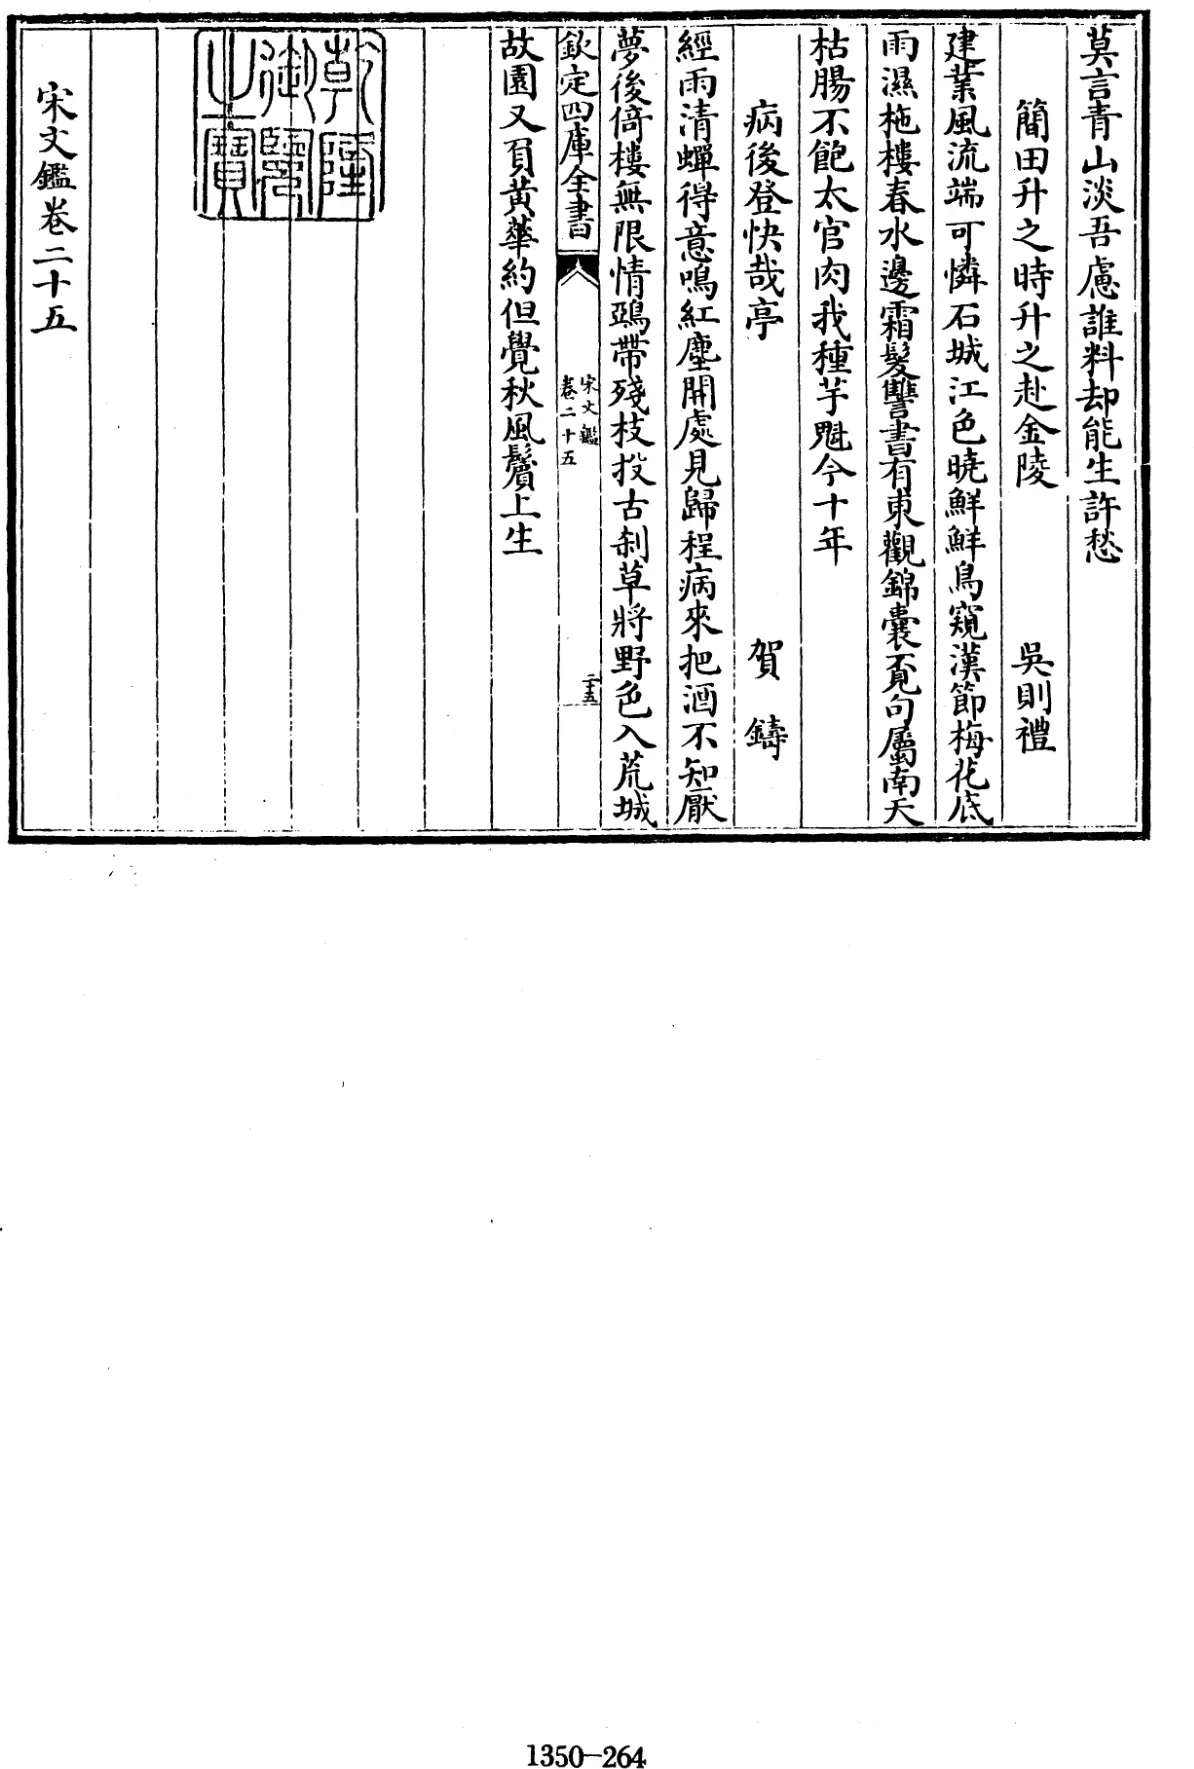 莫言青山淡吾慮誰料却能生許愁
簡田升之時升之赴金陵 吳則禮
建業風流端可憐石城江色曉鮮鮮鳥窺漢節梅花底
雨濕柂樓春水邊霜髮讐書有東觀錦囊覔句屬南天
枯腸不飽太官肉我種芋魁今十年
病後登快哉亭 賀鑄
經雨清蟬得意鳴紅塵開處見歸程病來把酒不知厭
夢後倚樓無限情鵶帶殘枝投古刹草將野色入荒城
欽定四庫全書
宋文鑑
卷二十五
二十五
故園又負黃華約但覺秋風鬢上生
乾隆
御覽
之寶
宋文鑑卷二十五
1350-264